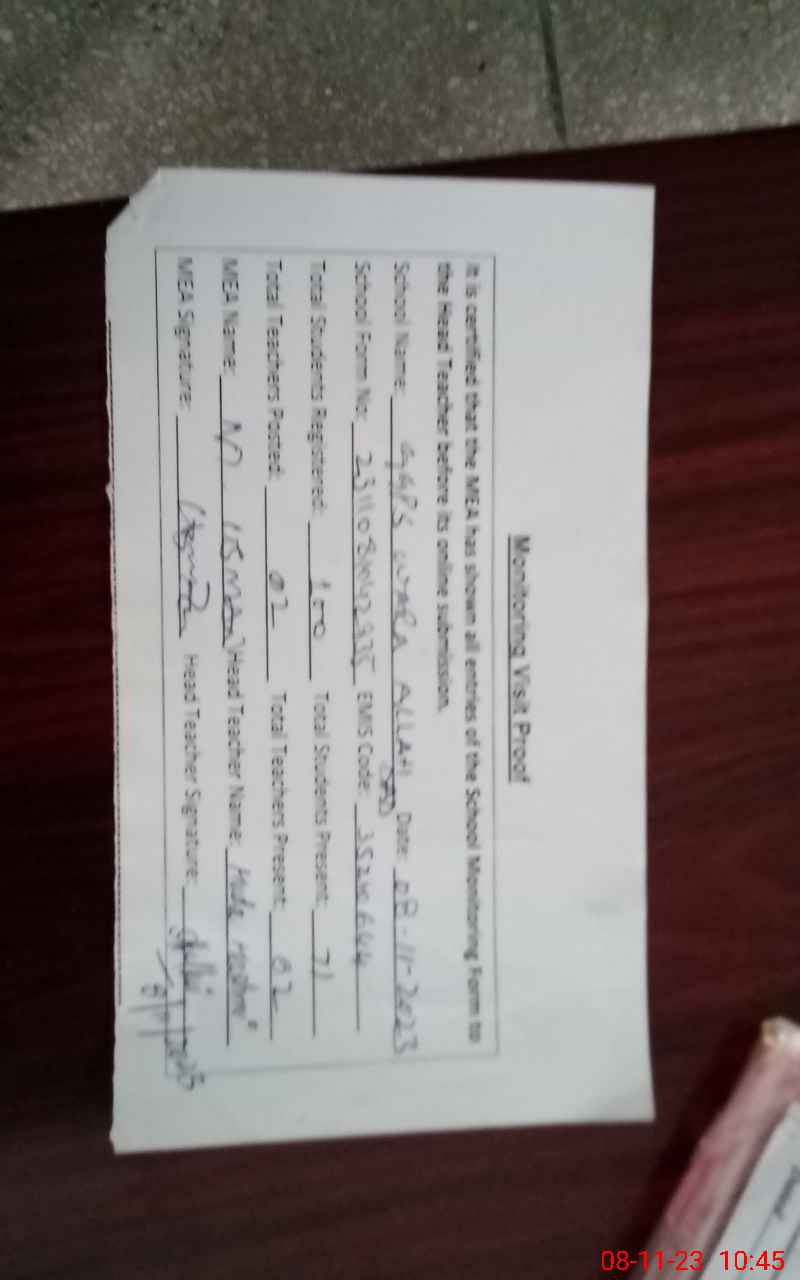 Monitoring Visit Proof
It is certified that the MEA has shown all entries of the School Monitoring Form to
the Head Teacher before its online submission.
School Name: GGPS WARA ALLAH DAD Date: 08-11-2023
School Form No: EMIS Code:
Total Students Registered: 100 Total Students Present: 71
Total Teachers Posted: 02 Total Teachers Present: 02
MEA Name: USMAN Head Teacher Name: Huda
MEA Signature: Usman Head Teacher Signature:
08-11-23 10:45